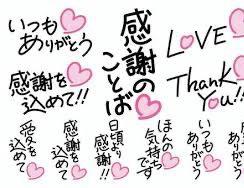 いつも
ありがとう
感謝を
込めて!!
感謝の
ことば
LOVE
Thank
You!!
愛を
込めて
感謝を
込めて
日頃より
感謝!!
ほんの
気持ち
です
いつも
ありがとう
いつも
ありがとう